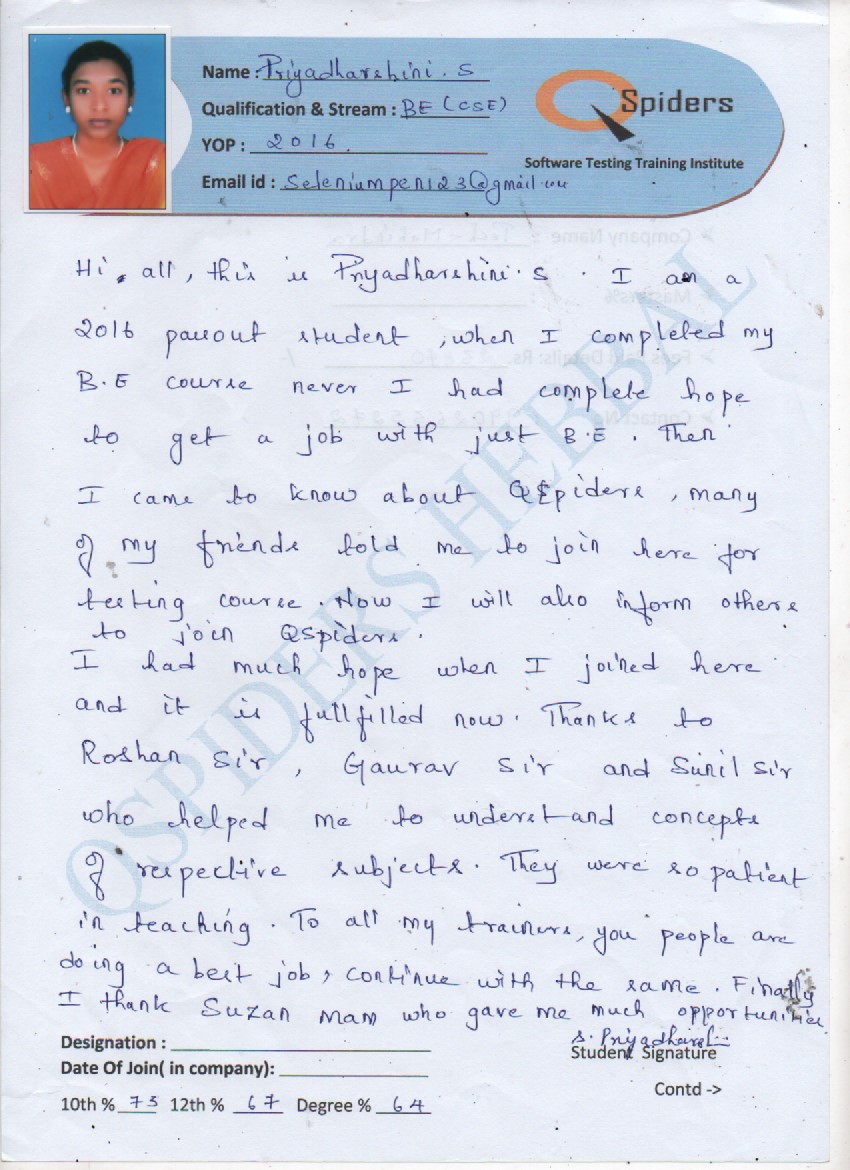 Name : Priyadharshini. S
Qualification & Stream : BE (CSE)
YOP : 2016.
Email id : seleniumpen123@gmail.com
QSpiders
Software Testing Training Institute
Hi, all, this is Priyadharshini. S. I am a
2016 passout student, when I completed my
B.E course never I had complete hope
to get a job with just B.E. Then
I came to know about QSpiders, many
of my friends told me to join here for
testing course. Now I will also inform others
to join QSpiders.
I had much hope when I joined here
and it is fullfilled now. Thanks to
Roshan Sir, Gaurav Sir and Sunil Sir
who helped me to understand concepts
of respective subjects. They were so patient
in teaching. To all my trainers, you people are
doing a best job, continue with the same. Finally
I thank Suzan mam who gave me much opportunities
S. Priyadharshi
Designation :
Student Signature
Date Of Join( in company):
Contd ->
10th % 73 12th % 67 Degree % 64
QSPIDERS HEBBAL